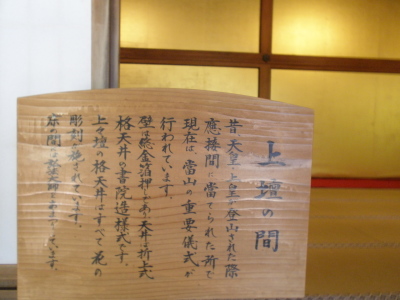 上壇の間
昔天皇・上皇が登山された際
應接間に當てられた所で
現在は當山の重要儀式が
行われています。
壁は総金箔押しであり天井は折上式
格天井の書院造様式です。
上々壇の格天井はすべて花の
彫刻が施されています。